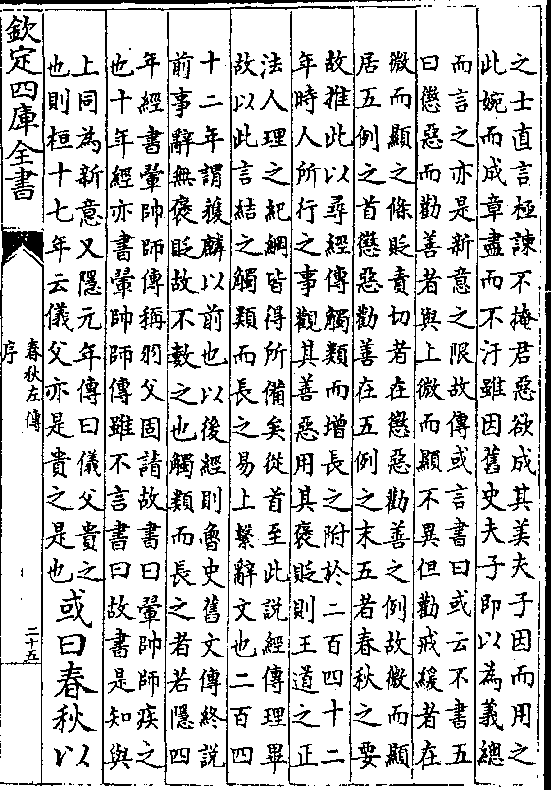 之士直言極諫不掩君惡欲成其美夫子因而用之
此婉而成章盡而不汙雖因舊史夫子即以為義總
而言之亦是新意之限故傳或言書曰或云不書五
曰懲惡而勸善者與上微而顯不異但勸戒緩者在
微而顯之條貶責切者在懲惡勸善之例故微而顯
居五例之首懲惡勸善在五例之末五者春秋之要
故推此以尋經傳觸類而增長之附於二百四十二
年時人所行之事觀其善惡用其褒貶則王道之正
法人理之紀綱皆得所備矣從首至此說經傳理畢
故以此言結之觸類而長之易上繫辭文也二百四
十二年謂獲麟以前也以後經則魯史舊文傳終說
前事辭無褒貶故不數之也觸類而長之者若隱四
年經書翬帥師傳稱羽父固請故書曰翬帥師疾之
也十年經亦書翬帥師傳雖不言書曰故書是知與
上同為新意又隱元年傳曰儀父貴之
也則桓十七年云儀父亦是貴之是也
或曰春秋以
欽定四庫全書
春秋左傳
序
二十五